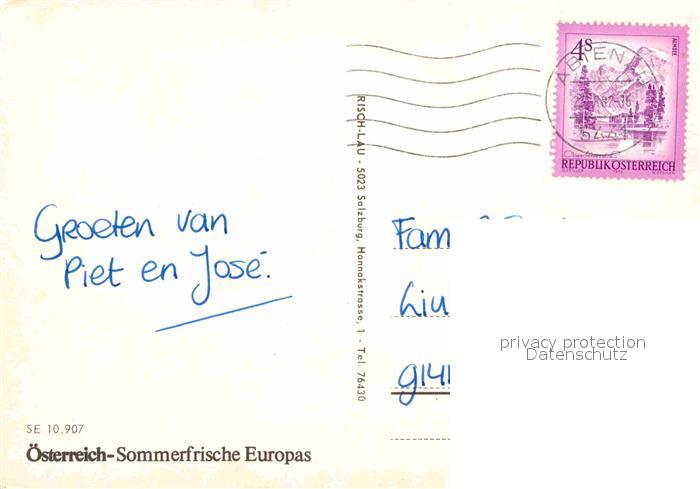 Groeten van
Piet en José.
SE 10.907
Österreich-Sommerfrische Europas
RISCH-LAU - 5023 Salzburg, Hannakstrasse, 1 - Tel. 76430
4S
ALMSEE
REPUBLIK ÖSTERREICH
ABTENAU
Fam
9141
privacy protection
Datenschutz